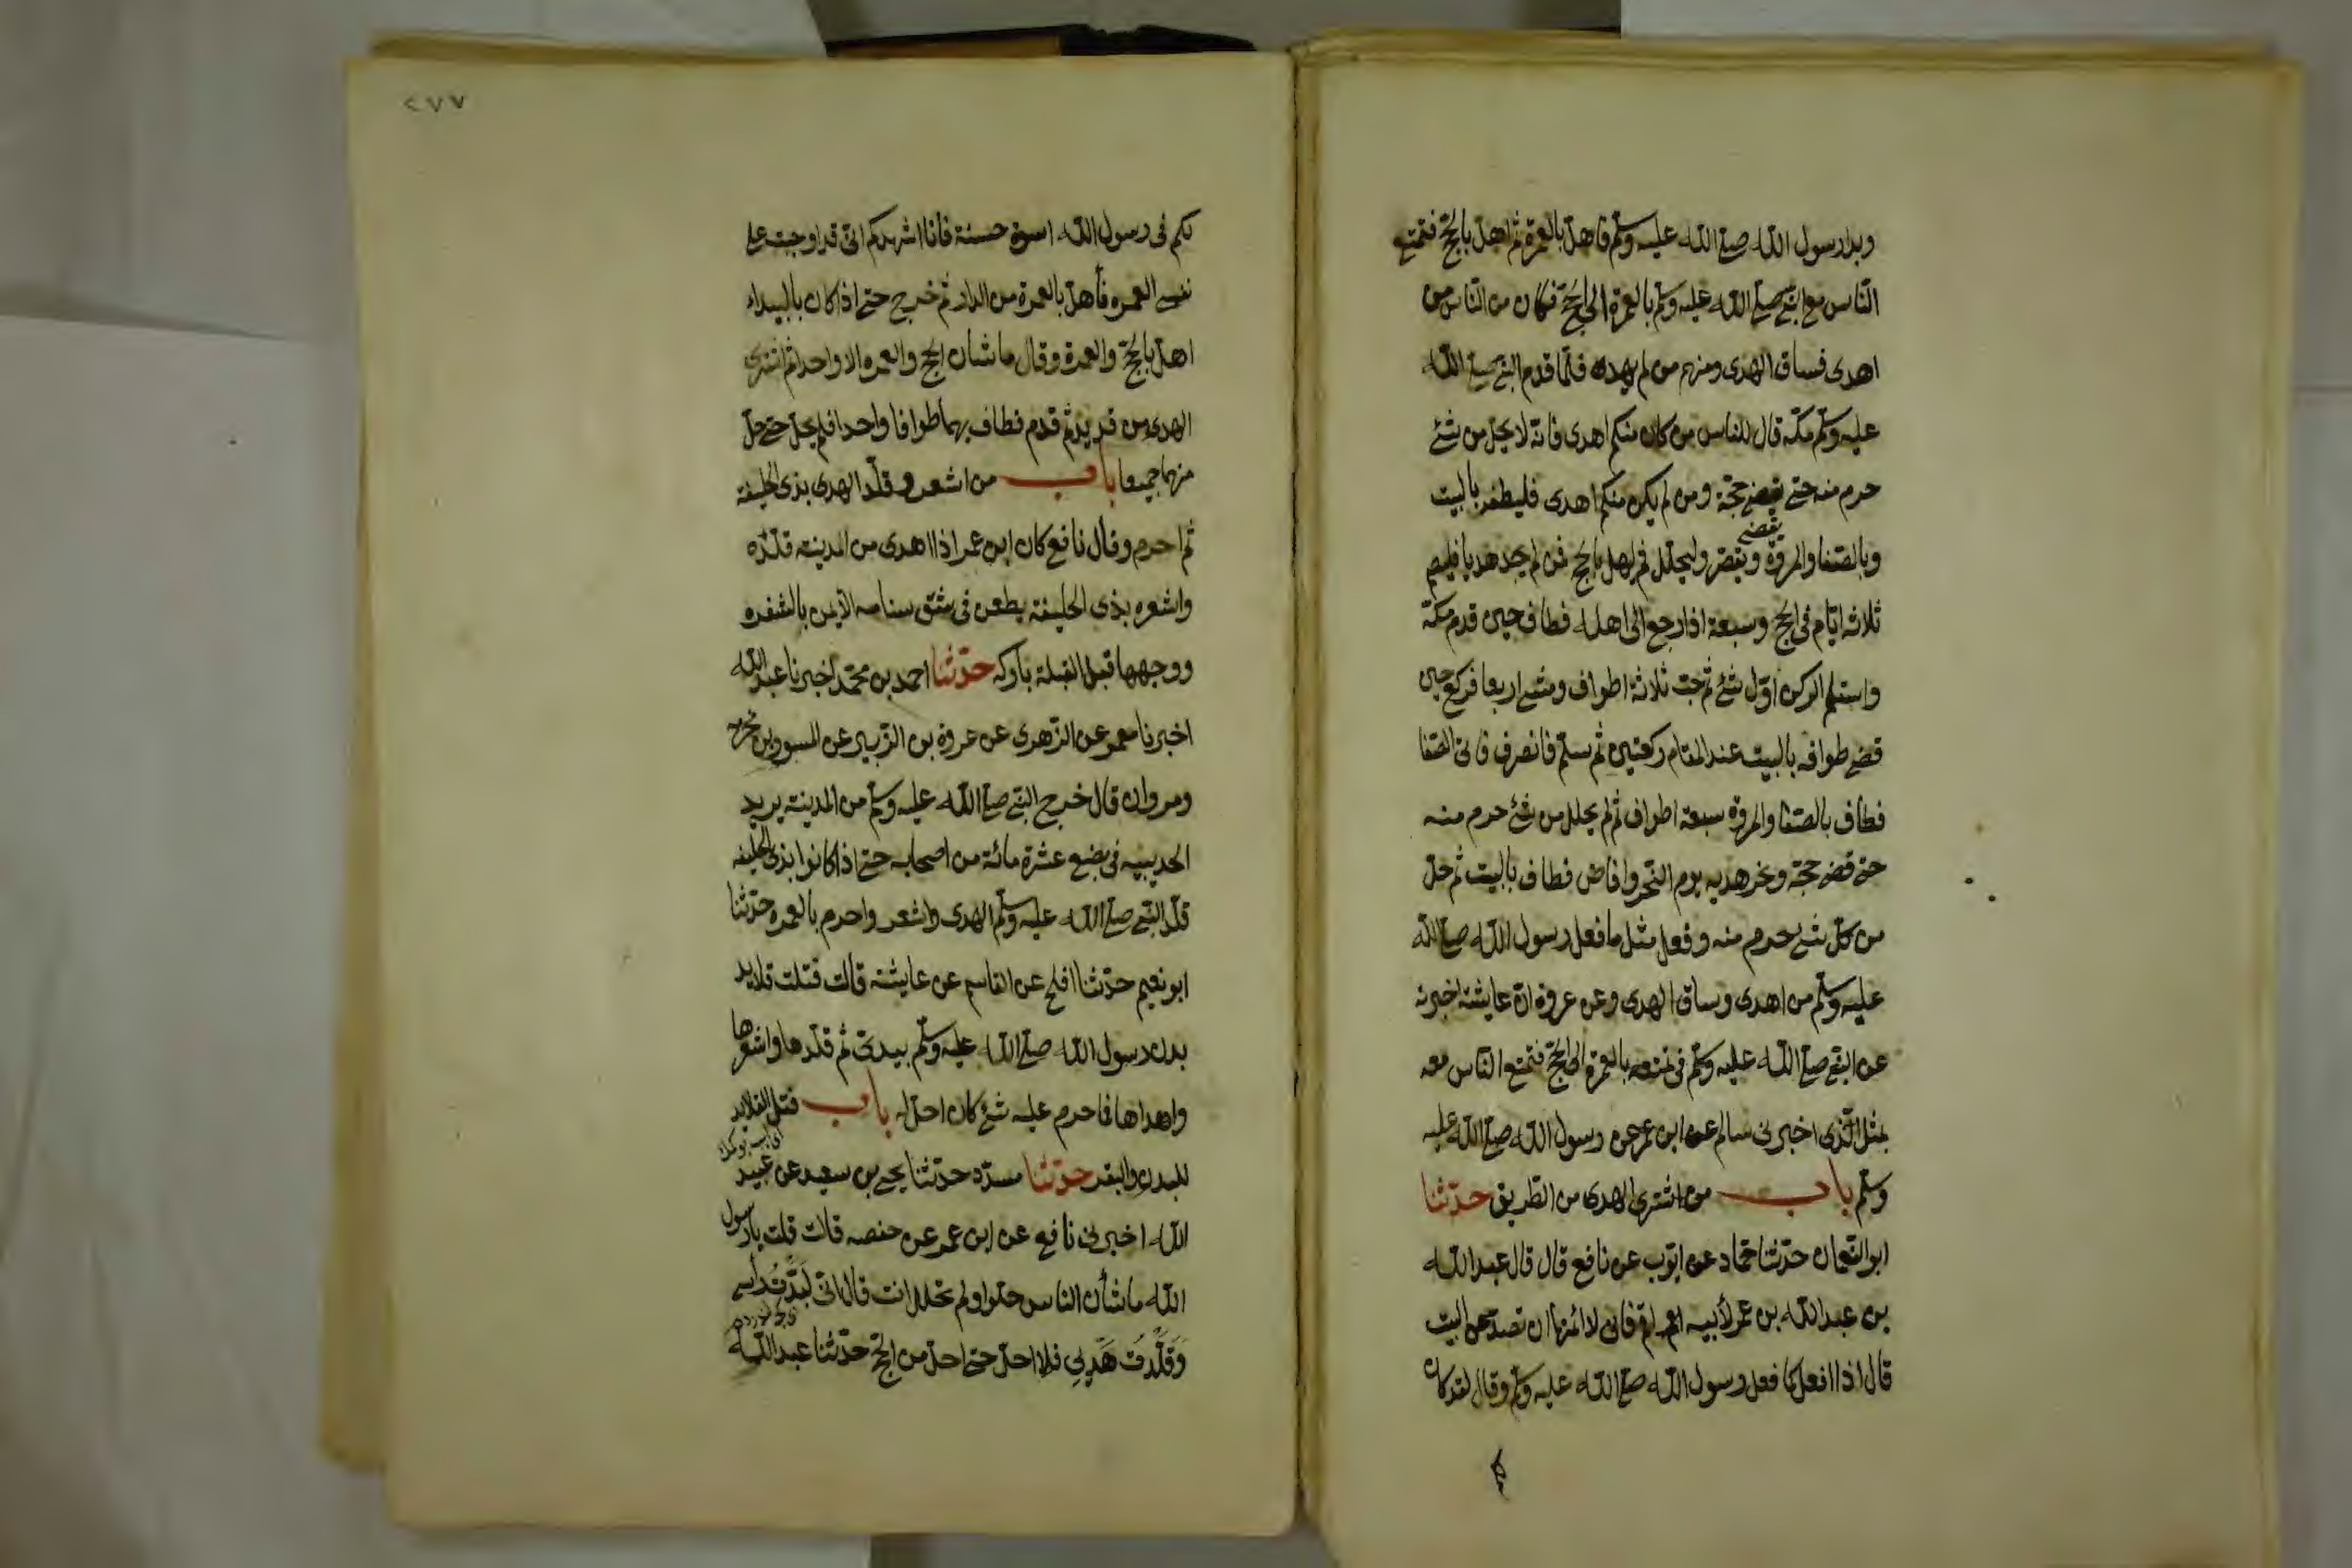 وبدا رسول الله صلى الله عليه وسلم فاهل بالعمرة ثم اهل بالحج فتمتع
الناس مع النبي صلى الله عليه وسلم بالعمرة الى الحج فكان من الناس من
اهدى فساق الهدى ومنهم من لم يهد فلما قدم النبي صلى الله
عليه وسلم مكة قال للناس من كان منكم اهدى فانه لا يحل من شئ
حرم منه حتى يقضي حجة ومن لم يكن منكم اهدى فليطف بالبيت
يقضي
وبالصفا والمروة ويقصر وليحلل ثم ليهل بالحج فمن لم يجد هديا فليصم
ثلاثة ايام في الحج وسبعة اذا رجع الى اهله فطاف حين قدم مكة
واستلم الركن اول شئ ثم خب ثلاثة اطواف ومشى اربعا فركع حين
قضى طوافه بالبيت عند المقام ركعتين ثم سلم فانصرف فاتى الصفا
فطاف بالصفا والمروة سبعة اطواف ثم لم يحلل من شئ حرم منه
حتى قضى حجة ونحر هديه يوم النحر وافاض فطاف بالبيت ثم حل
من كل شئ حرم منه وفعل مثل ما فعل رسول الله صلى الله
عليه وسلم من اهدى وساق الهدى وعن عروة ان عايشة اخبرته
عن النبي صلى الله عليه وسلم في تمتعه بالعمرة الى الحج فتمتع الناس معه
بمثل الذى اخبرني سالم عن ابن عمر عن رسول الله صلى الله عليه
وسلم باب من اشترى الهدى من الطريق حدثنا
ابو النعمان حدثنا حماد عن ايوب عن نافع قال قال عبد الله
بن عبد الله بن عمر لأبيه اقم فاني لا ائمنها ان تصد عن البيت
قال اذا افعل كما فعل رسول الله صلى الله عليه وسلم وقال لقد كان
٢٧٧
لكم فى رسول الله اسوة حسنة فأنا اشهدكم انى قد اوجبت على
نفسى العمره فأهل بالعمرة من الدار ثم خرج حتى اذا كان بالبيداء
اهل بالحج والعمرة وقال ما شان الحج والعمره الا واحد ثم اشترى
الهدى من قديد ثم قدم فطاف بهما طوافا واحدا فلم يحل حتى حل
منهما جميعا باب من اشعر وقلد الهدى بذى الحليفة
ثم احرم وقال نافع كان ابن عمر اذا اهدى من المدينة قلده
واشعره بذى الحليفة يطعن فى شق سنامه الأيمن بالشفره
ووجهها قبل القبلة باركة حدثنا احمد بن محمد اخبرنا عبد الله
اخبرنا معمر عن الزهرى عن عروة بن الزبير عن المسور بن مخرمه
ومروان قال خرج النبي صلى الله عليه وسلم من المدينة يريد
الحديبيه في بضع عشرة مائة من اصحابه حتى اذا كانوا بذى الحليفه
قلد النبي صلى الله عليه وسلم الهدى واشعر واحرم بالعمره حدثنا
ابو نعيم حدثنا افلح عن القاسم عن عايشة قالت فتلت قلايد
بدن رسول الله صلى الله عليه وسلم بيدى ثم قلدها واشعرها
واهداها فما حرم عليه شئ كان احل له باب فتل القلايد
للبدن والبقر حدثنا مسدد حدثنا يحيى بن سعيد عن عبيد
الله اخبرني نافع عن ابن عمر عن حفصه قالت قلت يا رسول
الله ما شأن الناس حلوا ولم تحلل انت قال انى لَبَّدْتُ رأسى
وَقَلَّدْتُ هَدْيِي فلا احل حتى احل من الحج حدثنا عبد الله